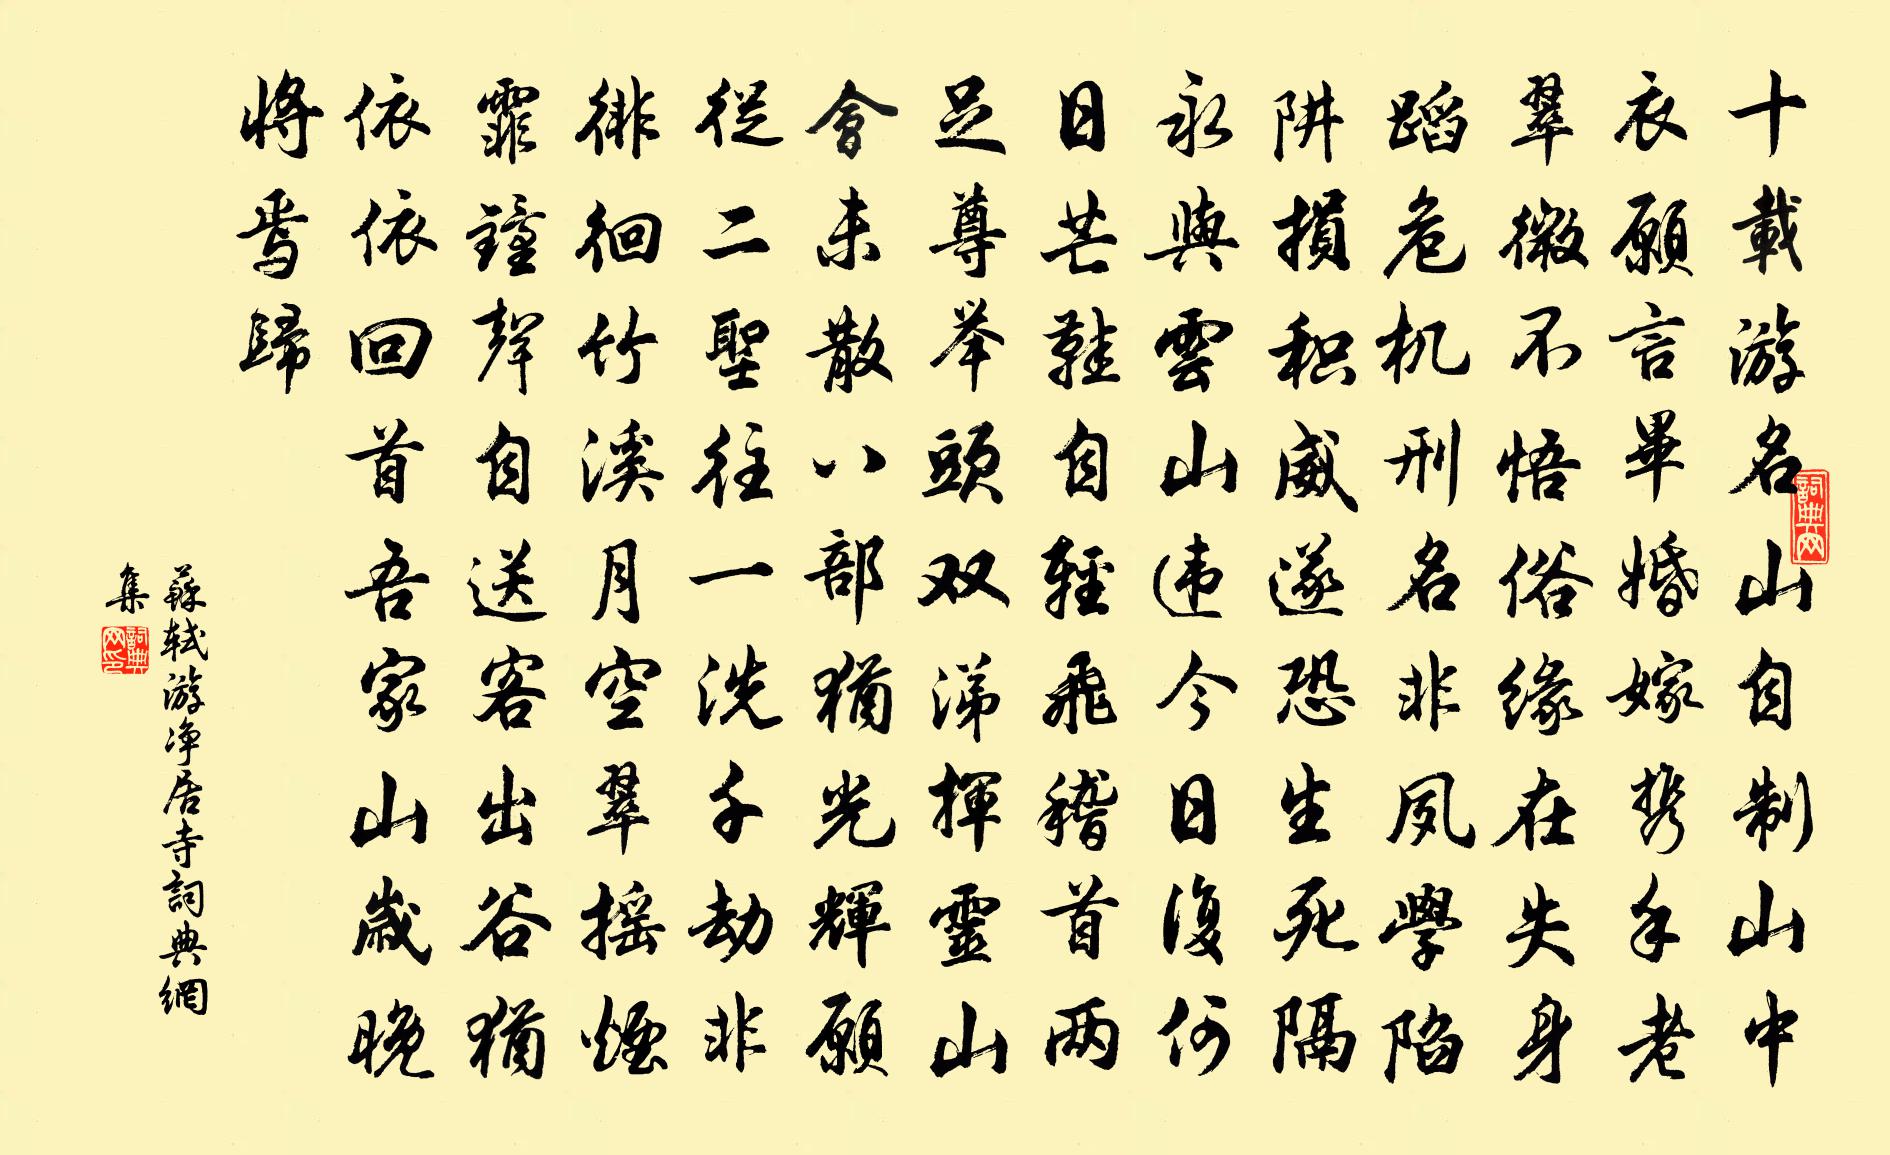 十載游名山自制山中
衣願言畢婚嫁携手老
翠微不悟俗缘在失身
蹈危机刑名非夙學陷
阱損积威遂恐生死隔
永與雲山违今日復何
日芒鞋自輕飛稽首两
足尊举頭双涕揮靈山
會未散八部猶光輝願
從二聖往一洗千劫非
徘徊竹溪月空翠摇煙
霏鐘聲自送客出谷猶
依依回首吾家山歲晚
將焉歸
蘇轼游净居寺詞典網
集
詞典网
詞典网印